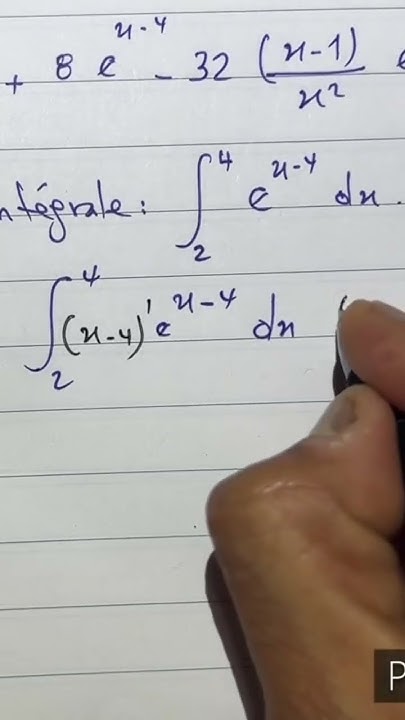 + 8 e^{x-4} - 32 \frac{(x-1)}{x^2} e
ntégrale : \int_2^4 e^{x-4} dx.
\int_2^4 (x-4)' e^{x-4} dx (
P